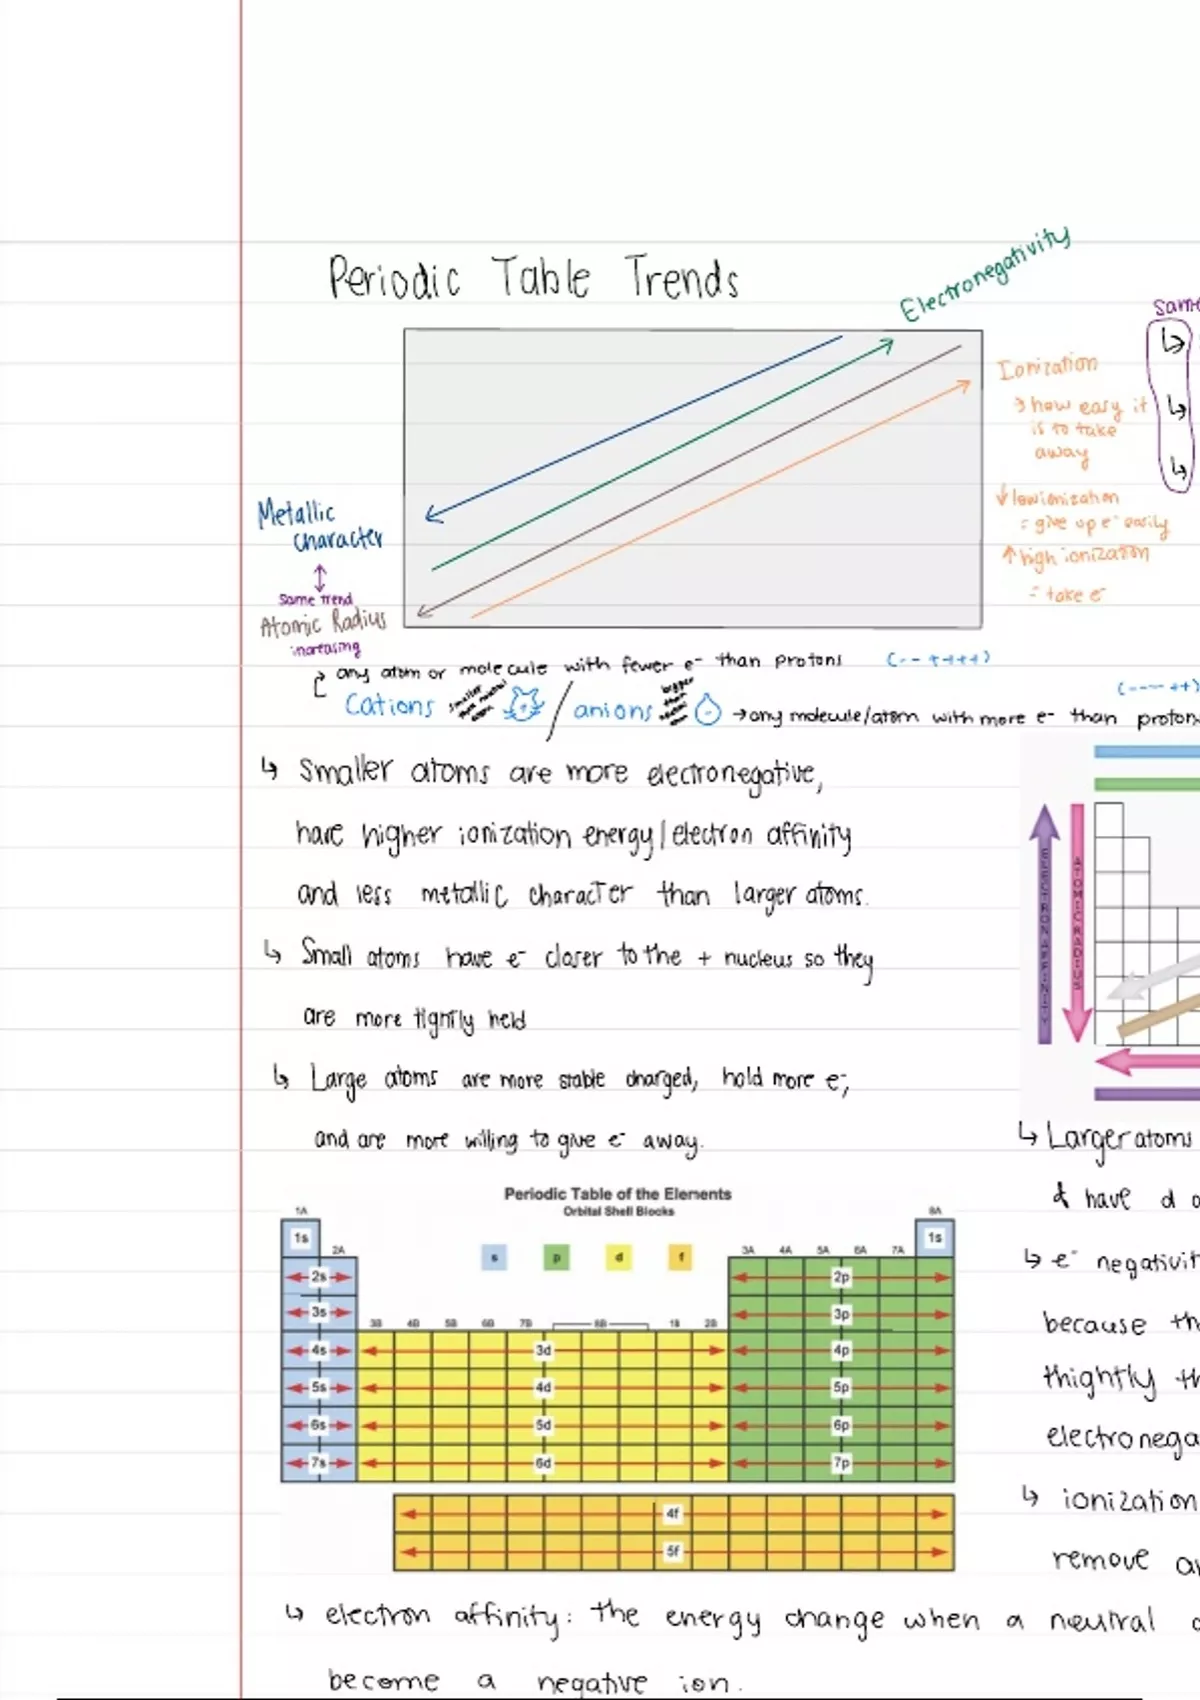 Periodic Table Trends
Electronegativity
Same
Ionization
→ how easy it
is to take
away
↓ low ionization
= give up e⁻ easily
↑ high ionization
= take e⁻
Metallic
character
Same trend
Atomic Radius
increasing
any atom or molecule with fewer e⁻ than protons (--++++)
(----++)
Cations smaller than neutral atom / anions bigger than neutral → any molecule/atom with more e⁻ than protons
↳ Smaller atoms are more electronegative,
have higher ionization energy/electron affinity
and less metallic character than larger atoms.
↳ Small atoms have e⁻ closer to the + nucleus so they
are more tightly held
↳ Large atoms are more stable charged, hold more e⁻,
and are more willing to give e⁻ away.
ELECTRON AFFINITY
ATOMIC RADIUS
↳ Larger atoms
& have d
↳ e⁻ negativit
because th
thightly th
electronega
↳ ionization
remove an
Periodic Table of the Elements
Orbital Shell Blocks
1A 8A
1s 1s
2A s p d f 3A 4A 5A 6A 7A
2s 2p
3s 3p
3B 4B 5B 6B 7B 8B 1B 2B
4s 3d 4p
5s 4d 5p
6s 5d 6p
7s 6d 7p
4f
5f
↳ electron affinity: the energy change when a neutral
become a negative ion.